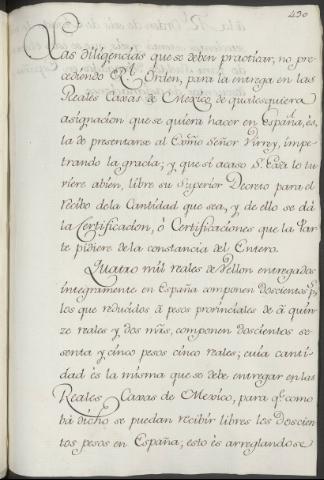 430
Las diligencias que se deben practicar, no pre-
cediendo Rl. Orden, para la entrega en las
Reales Caxas de Mexico de qualesquiera
asignacion que se quiera hacer en España, es,
la de presentarse al Exmo Señor Virrey, impe-
trando la gracia; y que si acaso S. Exa. lo tu-
viere abien, libre su Superior Decreto para el
recibo de la Cantidad que sea, y de ello se dá
la Certificacion, ó Certificaciones que la Par-
te pidiere de la constancia del Entero.
Quatro mil reales de Vellon entregados
integramente en España componen doscientos ps,
los que reducidos á pesos provinciales de á quin-
ze reales y dos mrs, componen doscientos se-
senta y cinco pesos cinco reales; cuia canti-
dad és la misma que se debe entregar en las
Reales Caxas de Mexico, para qe. como
bá dicho se puedan recibir libres los doscien-
tos pesos en España; esto és arreglandose